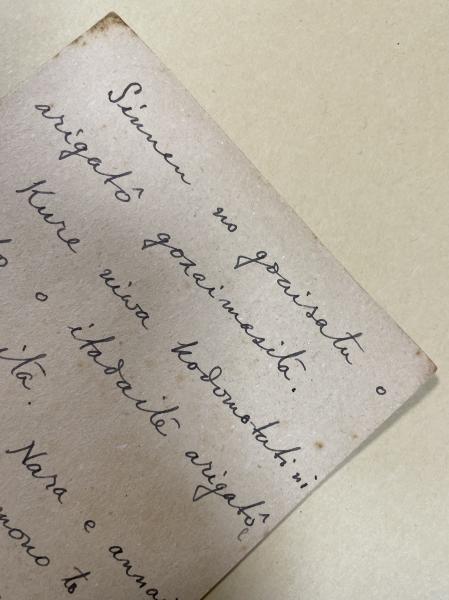 Sinnen no goaisatu o
arigatô gozaimasita.
Kure niwa kodomotati ni
o itadaite arigatô
ita.
Nara e annai
mono to